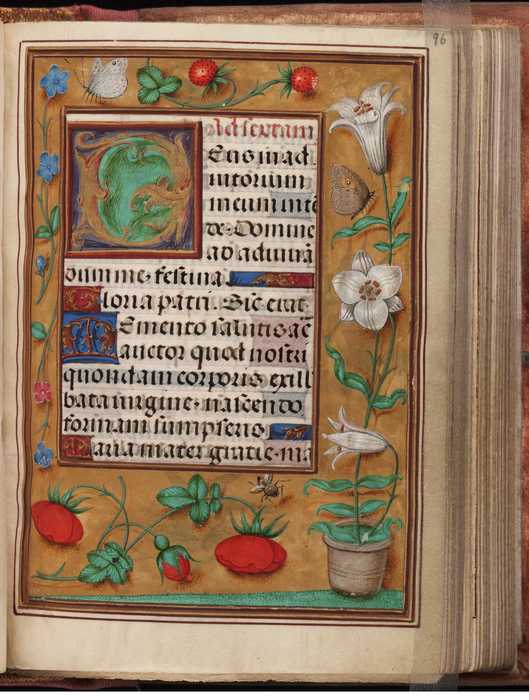 96
Ad sextam
Deus in ad
iutorium
meum inte
de. Domine
ad adiuua
dum me. festina.
Gloria patri. Sic erat.
Memento salutis
auctor quod nostri
quondam corporis ex illi
bata uirgine. nascendo
formam sumpseris
Maria mater gratie. ma